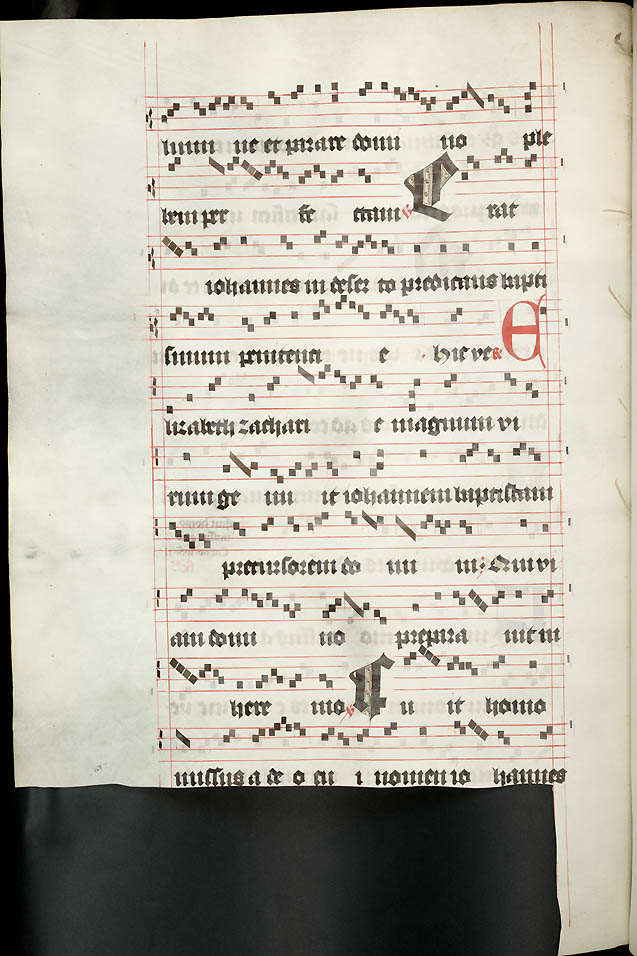 lumi ne et parare domi no ple
bem per fe ctam ℣ E rat
iohannes in deser to predicans bapti
smum penitenci e . Hic ve ℟ E
lizabeth zachari e magnum vi
rum ge nu it iohannem baptistam
precursorem do mi ni : Qui vi
am domi no o prepara uit in
here mo ℣ F u it homo
missus a de o cu i nomen io hannes